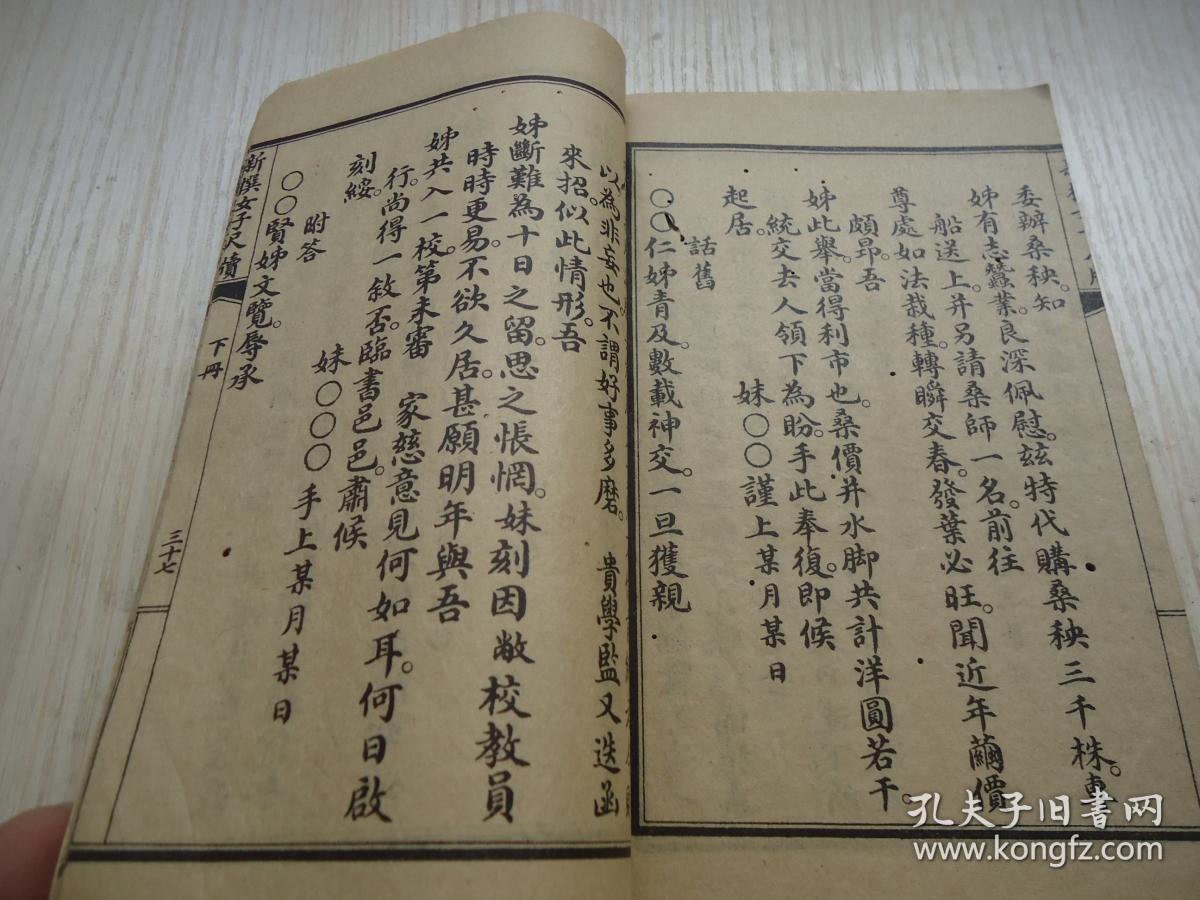 委辦桑秧。知
姊有志蠶業。良深佩慰。玆特代購桑秧三千株。專
船送上。并另請桑師一名。前往
尊處如法栽種。轉瞬交春。發葉必旺。聞近年繭價
頗昂。吾
姊此舉。當得利市也。桑價并水脚共計洋圓若干。
統交去人領下為盼。手此奉復。即候
起居。
妹〇〇謹上某月某日
話舊
〇〇仁姊青及。數載神交。一旦獲親
以為非妄也。不謂好事多磨。 貴學監又迭函
來招。似此情形。吾
姊斷難為十日之留。思之悵惘。妹刻因敝校教員
時時更易。不欲久居。甚願明年與吾
姊共入一校。第未審 家慈意見何如耳。何日啟
行。尚得一敘否。臨書邑邑。肅候
刻綏。
妹〇〇〇手上某月某日
附答
〇〇賢姊文覽。辱承
新撰女子尺牘
下冊
三十七
孔夫子旧書网
www.kongfz.com